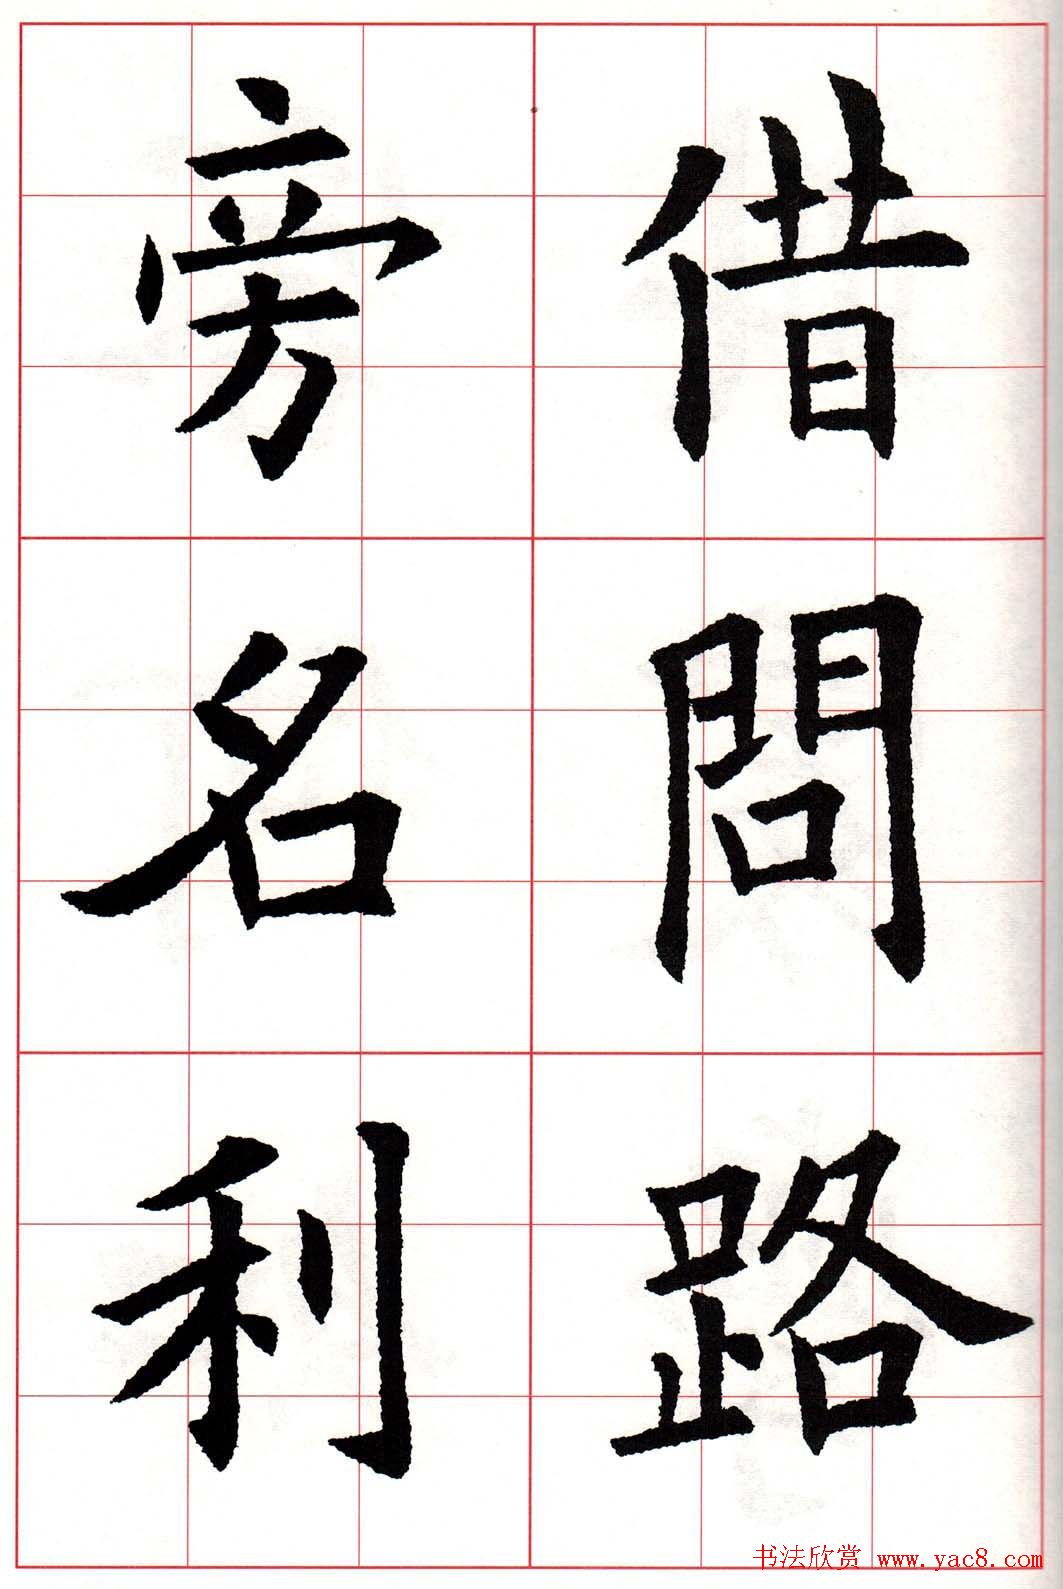 借問路
旁名利
书法欣赏 www.yac8.com